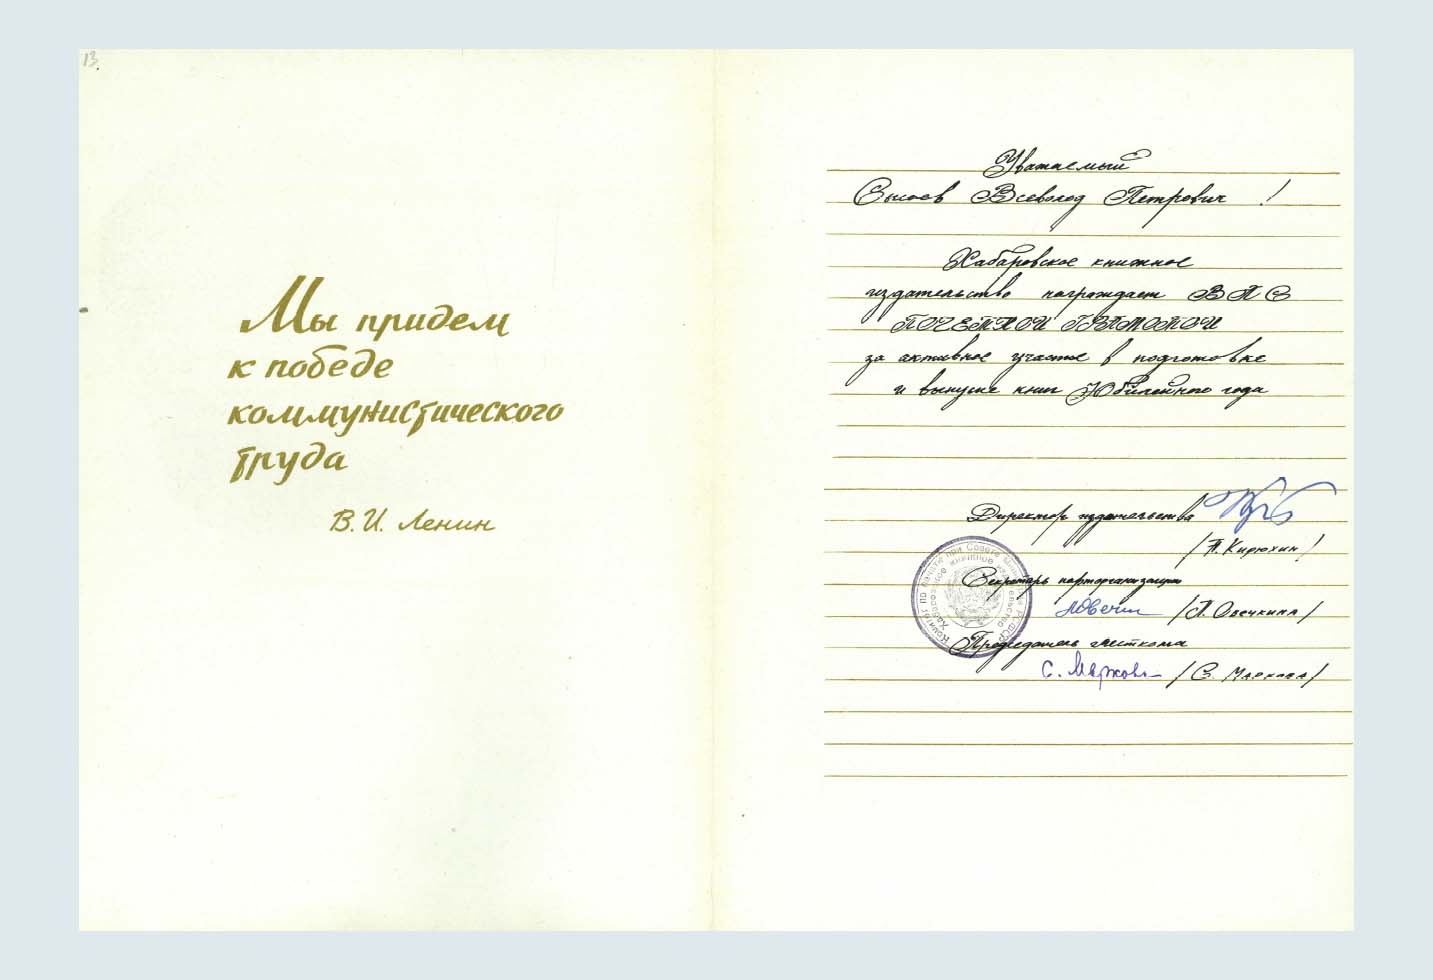 13.
Мы придем
к победе
коммунистического
труда
В. И. Ленин
Уважаемый
Сысоев Всеволод Петрович !
Хабаровское книжное
издательство награждает ВАС
ПОЧЕТНОЙ ГРАМОТОЙ
за активное участие в подготовке
и выпуске книг Юбилейного года
Директор издательства
/П. Кирюхин/
Секретарь парторганизации
/Л. Овечкина/
Председатель месткома
С. Маркова /С. Маркова/
Комитет по печати при Совете Министров РСФСР
Хабаровское книжное издательство